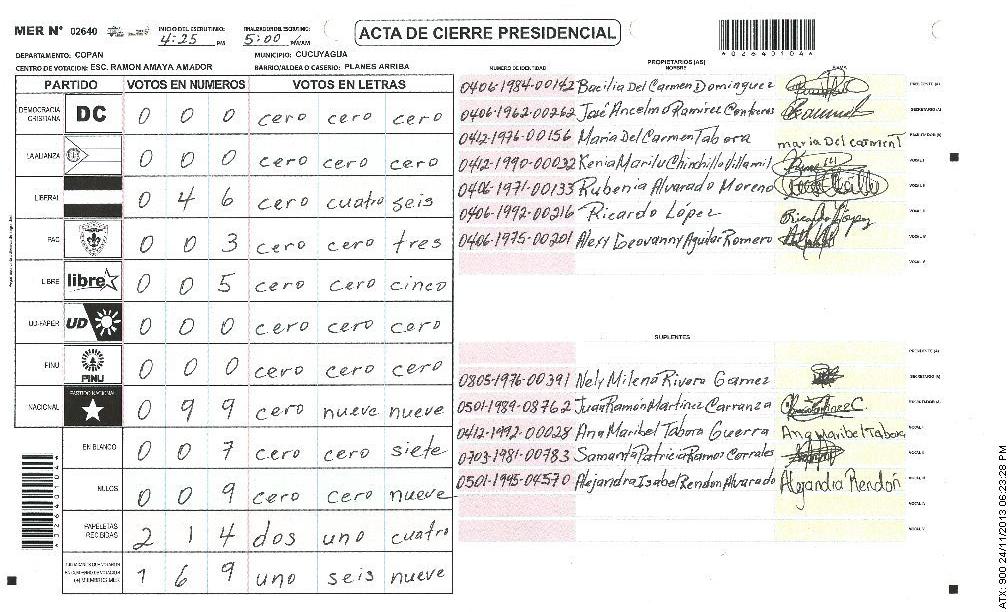 MER N° 02640
INICIO DEL ESCRUTINIO: 4:25 PM
FINALIZADO ESCRUTINIO: 5:00 PM/AM
ACTA DE CIERRE PRESIDENCIAL
*02640104*
DEPARTAMENTO: COPAN
MUNICIPIO: CUCUYAGUA
CENTRO DE VOTACION: ESC. RAMON AMAYA AMADOR
BARRIO/ALDEA O CASERIO: PLANES ARRIBA
PARTIDO VOTOS EN NUMEROS VOTOS EN LETRAS
DEMOCRACIA CRISTIANA DC 0 0 0 cero cero cero
LA ALIANZA 0 0 0 cero cero cero
LIBERAL 0 4 6 cero cuatro seis
PAC 0 0 3 cero cero tres
LIBRE libre 0 0 5 cero cero cinco
UD-FAPER UD 0 0 0 cero cero cero
PINU PINU 0 0 0 cero cero cero
NACIONAL PARTIDO NACIONAL 0 9 9 cero nueve nueve
EN BLANCO 0 0 7 cero cero siete
NULOS 0 0 9 cero cero nueve
PAPELETAS RECIBIDAS 2 1 4 dos uno cuatro
(+) MIEMBROS MER 1 6 9 uno seis nueve
NUMERO DE IDENTIDAD
PROPIETARIOS (AS)
NOMBRE
FIRMA
0406-1984-00142 Bacilia Del Carmen Dominguez PRESIDENTE (A)
0406-1962-00262 José Ancelmo Ramirez Contreras SECRETARIO (A)
0412-1976-00156 Maria Del Carmen Tabora maria Del carmen T ESCRUTADOR (A)
0412-1990-00032 Kenia Marilu Chinchilla Villamil VOCAL I
0406-1971-00133 Rubenia Alvarado Moreno VOCAL II
0406-1992-00216 Ricardo López Ricardo López VOCAL III
0406-1975-00201 Alexy Geovanny Aguilar Romero VOCAL IV
VOCAL V
SUPLENTES
PRESIDENTE (A)
0805-1976-00391 Nely Milena Rivera Gamez SECRETARIO (A)
0501-1989-08762 Juan Ramón Martinez Carranza ESCRUTADOR (A)
0412-1992-00028 Ana Maribel Tabora Guerra Ana Maribel Tabora VOCAL I
0703-1981-00783 Samanta Patricia Ramos Corrales VOCAL II
0501-1945-04570 Alejandra Isabel Rendon Alvarado Alejandra Rendón VOCAL III
VOCAL IV
VOCAL V
ATX: 900 24/11/2013 06:23:28 PM